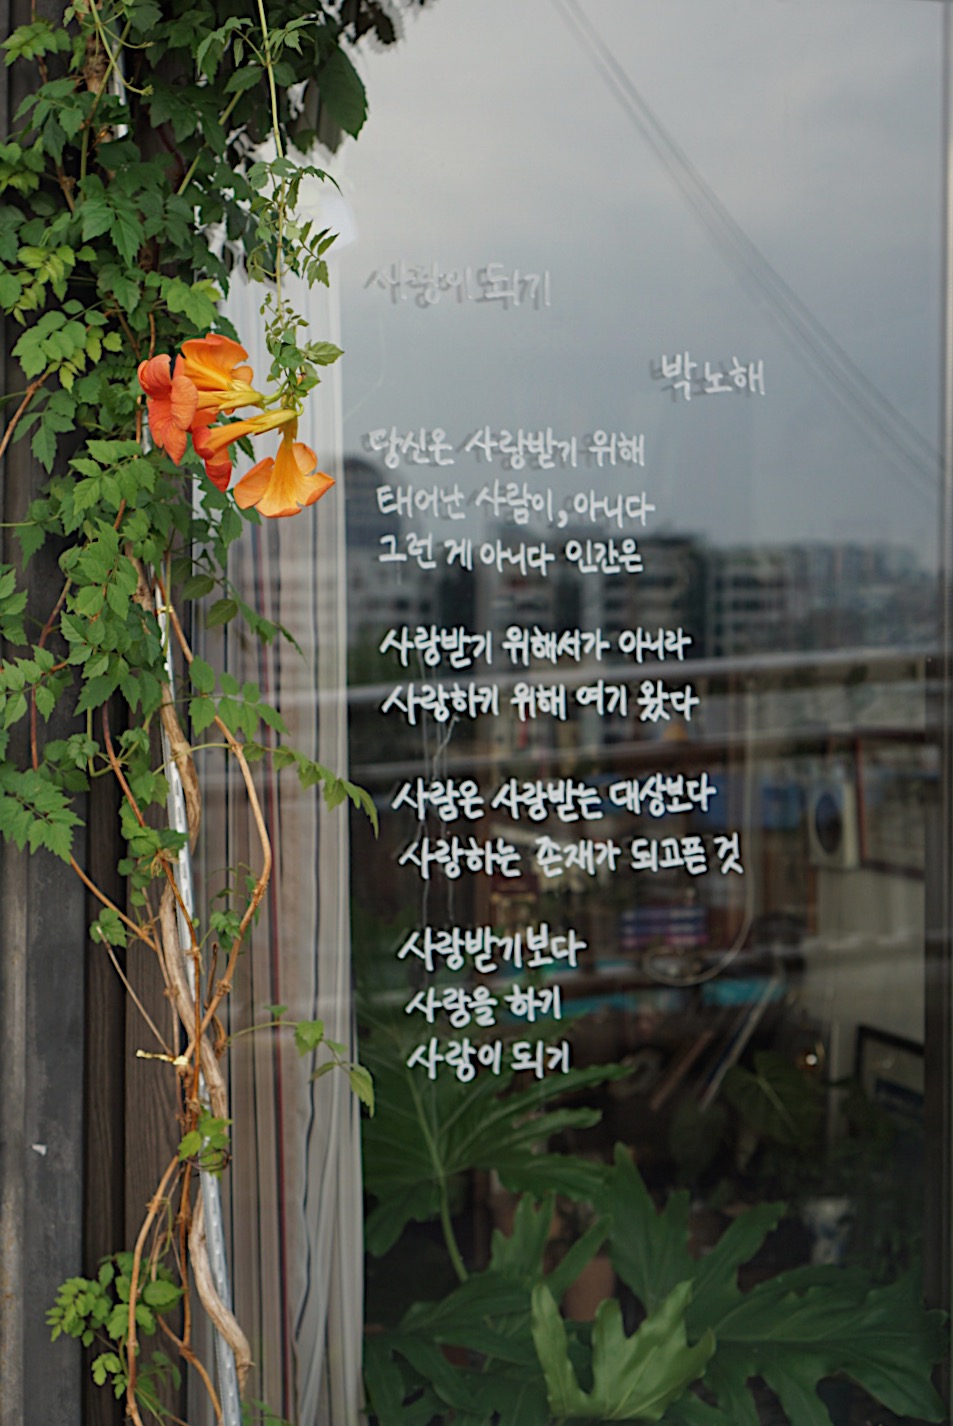 사랑이 되기
박노해
당신은 사랑받기 위해
태어난 사람이, 아니다
그런 게 아니다 인간은
사랑받기 위해서가 아니라
사랑하키 위해 여기 왔다
사람은 사랑받는 대상보다
사랑하는 존재가 되고픈 것
사랑받기보다
사랑을 하기
사랑이 되기